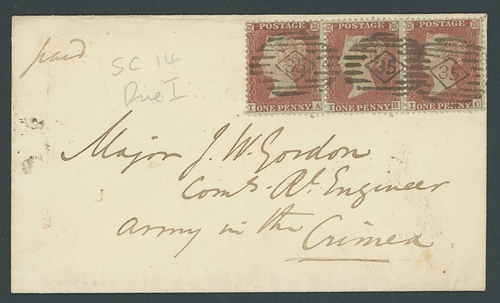 paid
SC 14
Die I
POSTAGE POSTAGE POSTAGE
35 35 35
I ONE PENNY A I ONE PENNY B I ONE PENNY C
Major J. W. Gordon
Comg. Rl. Engineer
Army in the
Crimea